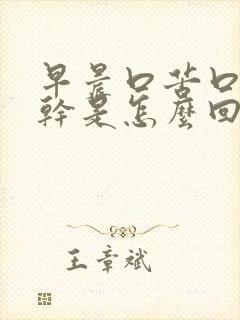 早晨口苦口
幹是怎麼回
王章斌